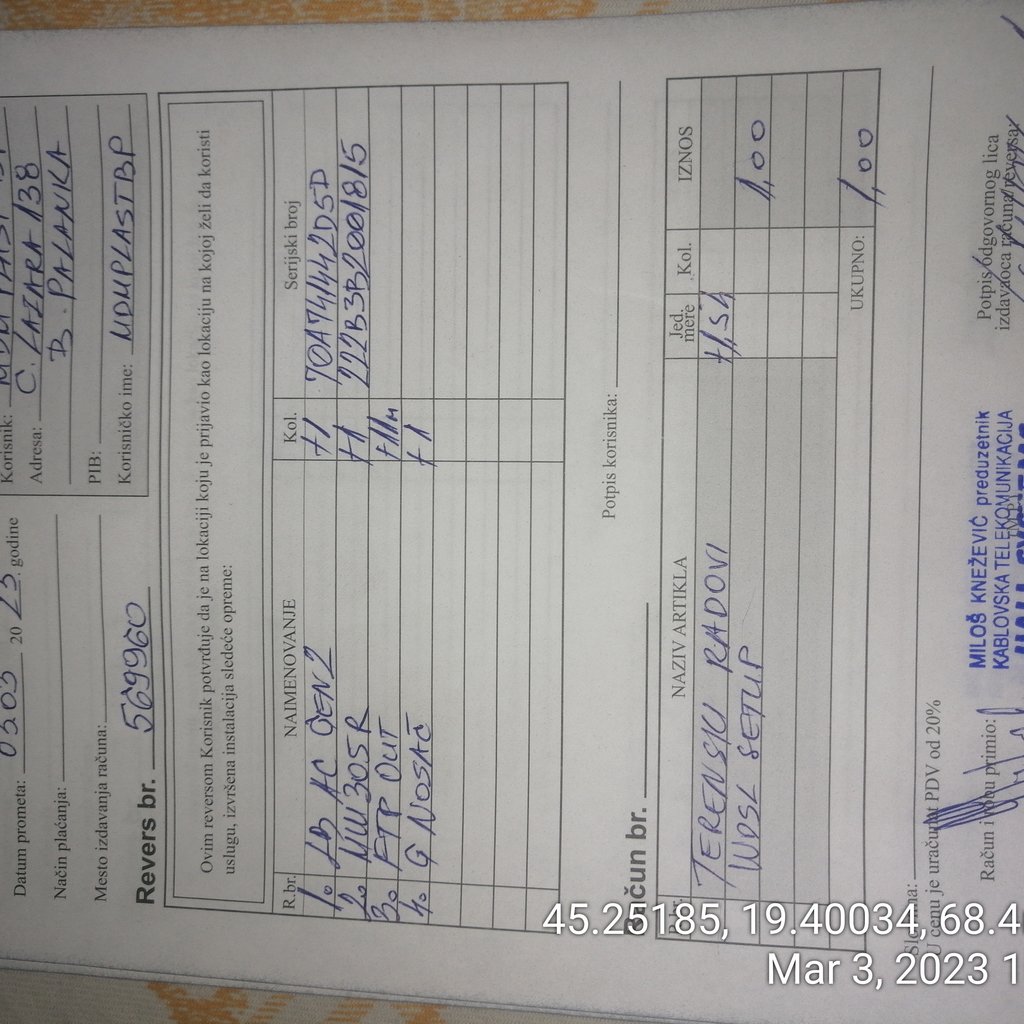 Datum prometa: 0303 2023. godine
Način plaćanja:
Mesto izdavanja računa:
Korisnik:
Adresa: C. LAZARA 138
B. PALANKA
PIB:
Korisničko ime: MDMPLASTBP
Revers br. 569960
Ovim reversom Korisnik potvrđuje da je na lokaciji koju je prijavio kao lokaciju na kojoj želi da koristi
uslugu, izvršena instalacija sledeće opreme:
R.br. NAIMENOVANJE Kol. Serijski broj
1. LB AC GEN2 +1 70A741442D5D
2. MW305R +1 222B3B2001815
3. FTP OUT +11m
4. G NOSAČ +1
Potpis korisnika:
Račun br.
NAZIV ARTIKLA Jed. mere Kol. IZNOS
TERENSKI RADOVI
WDSL SETUP 1,00
UKUPNO: 1,00
U cenu je uračunat PDV od 20%
Račun i robu primio:
MILOŠ KNEŽEVIĆ preduzetnik
KABLOVSKA TELEKOMUNIKACIJA
Potpis odgovornog lica
izdavaoca računa/reversa:
45.25185, 19.40034, 68.4
Mar 3, 2023 1